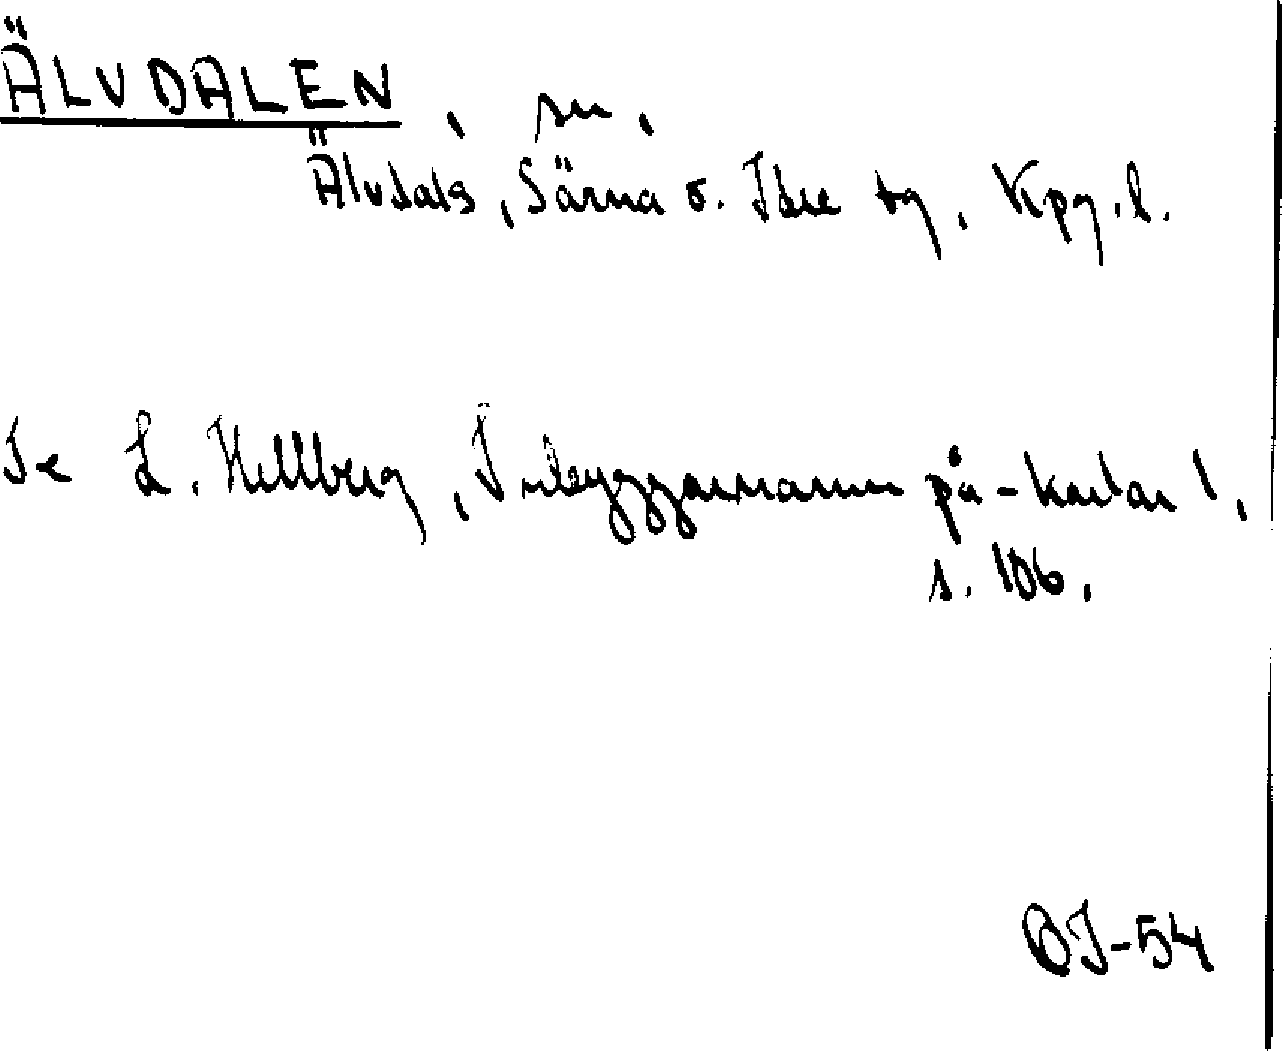 ÄLVDALEN, sn,
Älvdals, Särna o. Idre tg, Kpg. l.
Se L. Hellberg, Inbyggarnamn på -karlar 1,
s. 106.
OJ-54